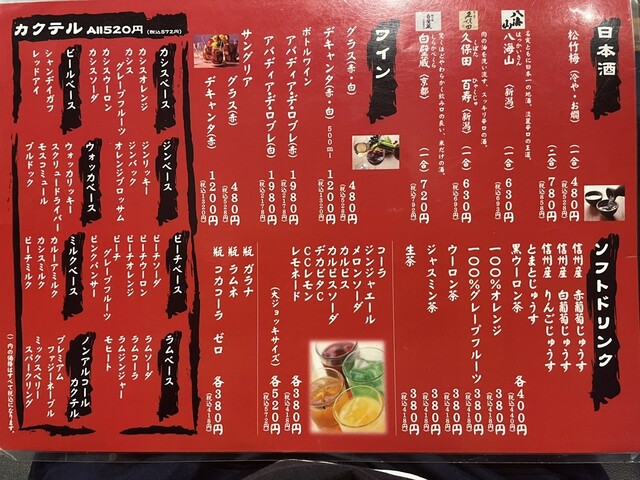 日本酒
松竹梅 (冷や・お燗) (一合) 480円 (税込528円)
(二合) 780円 (税込858円)
名実ともに日本一の地酒。淡麗辛口の王道。
八海山 (新潟) (一合) 630円
はっかいさん
八海山
肉の油を洗い流す、スッキリ辛口の酒。
久保田 百寿 (新潟) (一合) 630円
白壁蔵 (京都) (一合) 720円 (税込792円)
ワイン
グラス(赤・白) 480円 (税込528円)
デキャンタ(赤・白) 500ml 1200円 (税込1320円)
ボトルワイン
アバディア・デ・ロブレ(赤) 1980円 (税込2178円)
アバディア・デ・ロブレ(白) 1980円 (税込2178円)
サングリア
グラス(赤) 480円 (税込528円)
デキャンタ(赤) 1200円 (税込1320円)
ソフトドリンク
信州産 赤葡萄じゅうす
信州産 白葡萄じゅうす
信州産 りんごじゅうす
とまとじゅうす
各400円
黒ウーロン茶 380円 (税込418円)
100%オレンジ 380円 (税込418円)
100%グレープフルーツ 380円 (税込418円)
ウーロン茶 380円 (税込418円)
ジャスミン茶 380円 (税込418円)
生茶 380円 (税込418円)
コーラ
ジンジャエール
メロンソーダ
カルピス
カルピスソーダ
デカビタC
CCレモン
レモネード
各380円 (税込418円)
(大ジョッキサイズ) 各520円 (税込572円)
瓶 ガラナ
瓶 ラムネ
瓶 コカコーラ ゼロ
各380円 (税込418円)
カクテル All520円 (税込572円)
カシスベース
カシスオレンジ
カシスグレープフルーツ
カシスウーロン
カシスソーダ
ビールベース
シャンディガフ
レッドアイ
ジンベース
ジンリッキー
ジンバック
オレンジブロッサム
ウォッカベース
ウォッカリッキー
スクリュードライバー
モスコミュール
ブルドック
ピーチベース
ピーチソーダ
ピーチウーロン
ピーチオレンジ
ピーチグレープフルーツ
ピンクパンサー
ミルクベース
カルーアミルク
カシスミルク
ピーチミルク
ラムベース
ラムソーダ
ラムコーラ
ラムジンジャー
モヒート
ノンアルコールカクテル
プレミアム
ファジーネーブル
ミックスベリー
スパークリング
( )内の価格はすべて税込になります。